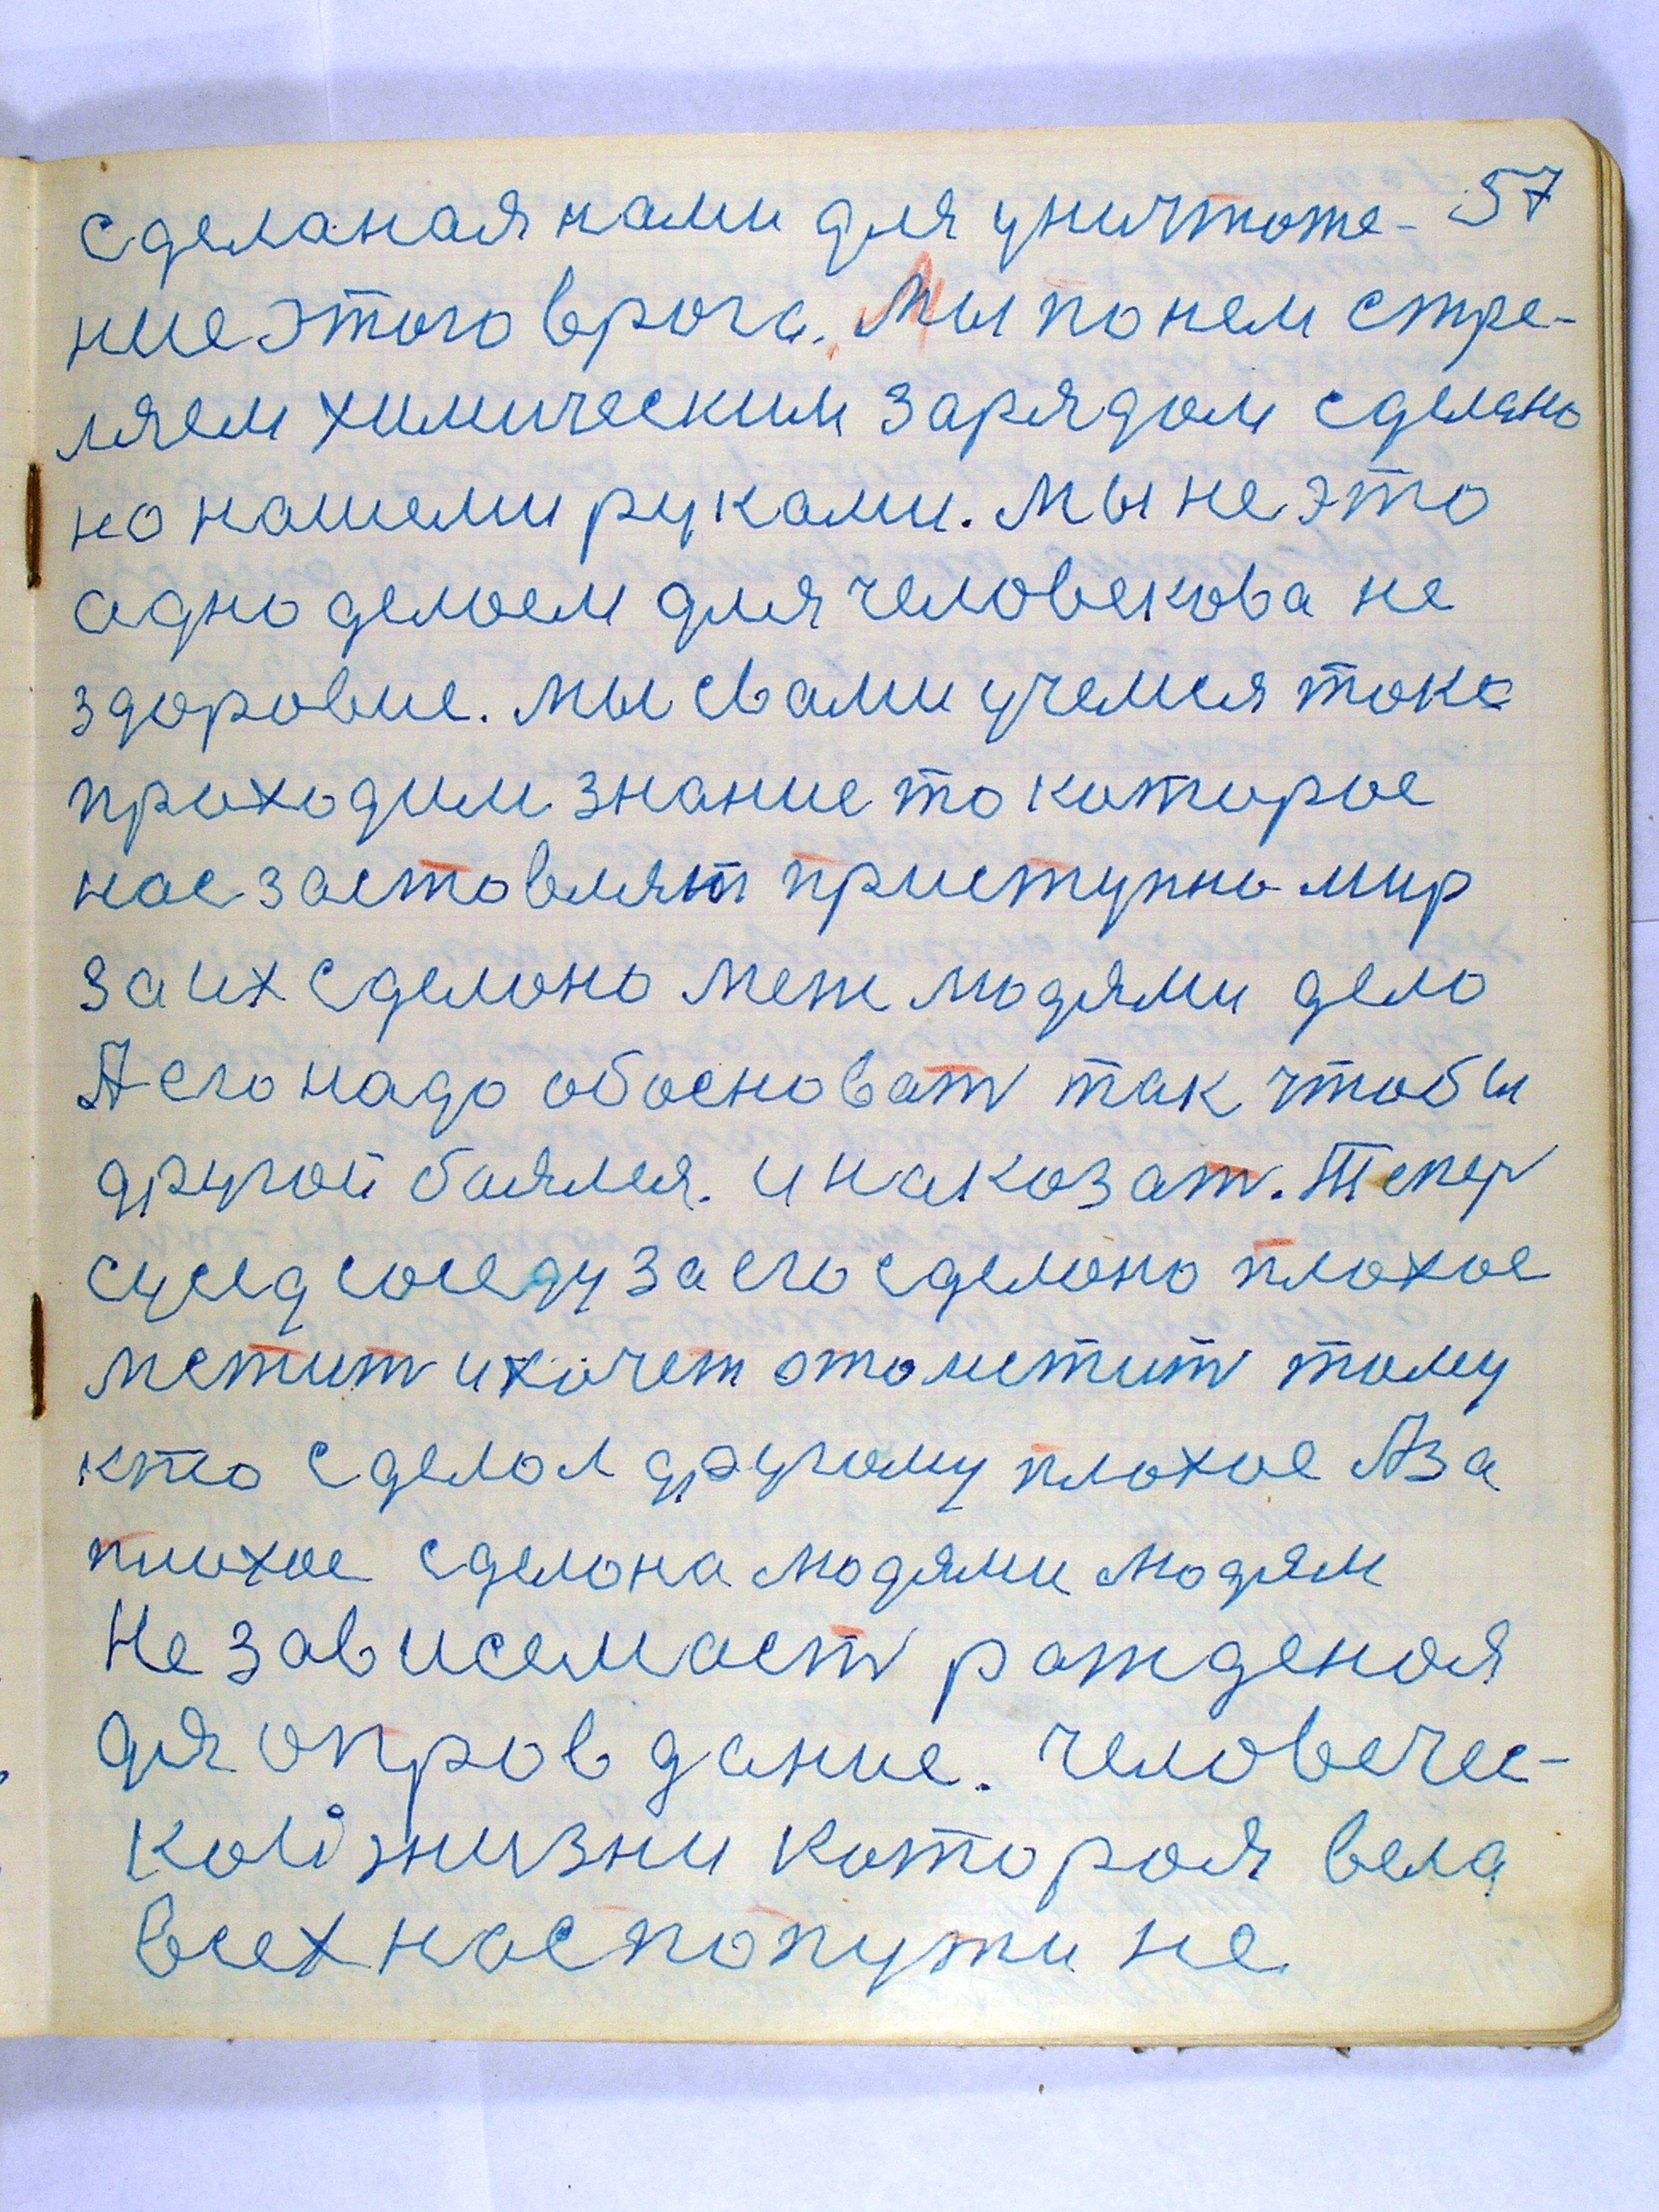 сделаная нами для уничтоже- 57
ние этого врога. Мы по нем стре-
ляем химическим зарядом сделано
но нашеми руками. Мы не это
адно делоем для человекова не
здоровие. Мы свами учемся токо
проходим знание то которое
нас застовлят приступно мир
за их сделоно меж людями дело
А его надо обосноват так чтобы
другой боялся. и наказат. Тепер
сусед соседу за его сделоно плохое
мстит и хочет отомстит тому
кто сделол другому плохое А за
плохое сделона людями людям
Не зависемаст рождения
для опровдание. человечес-
кой жизни которая вела
всех нас по пути не